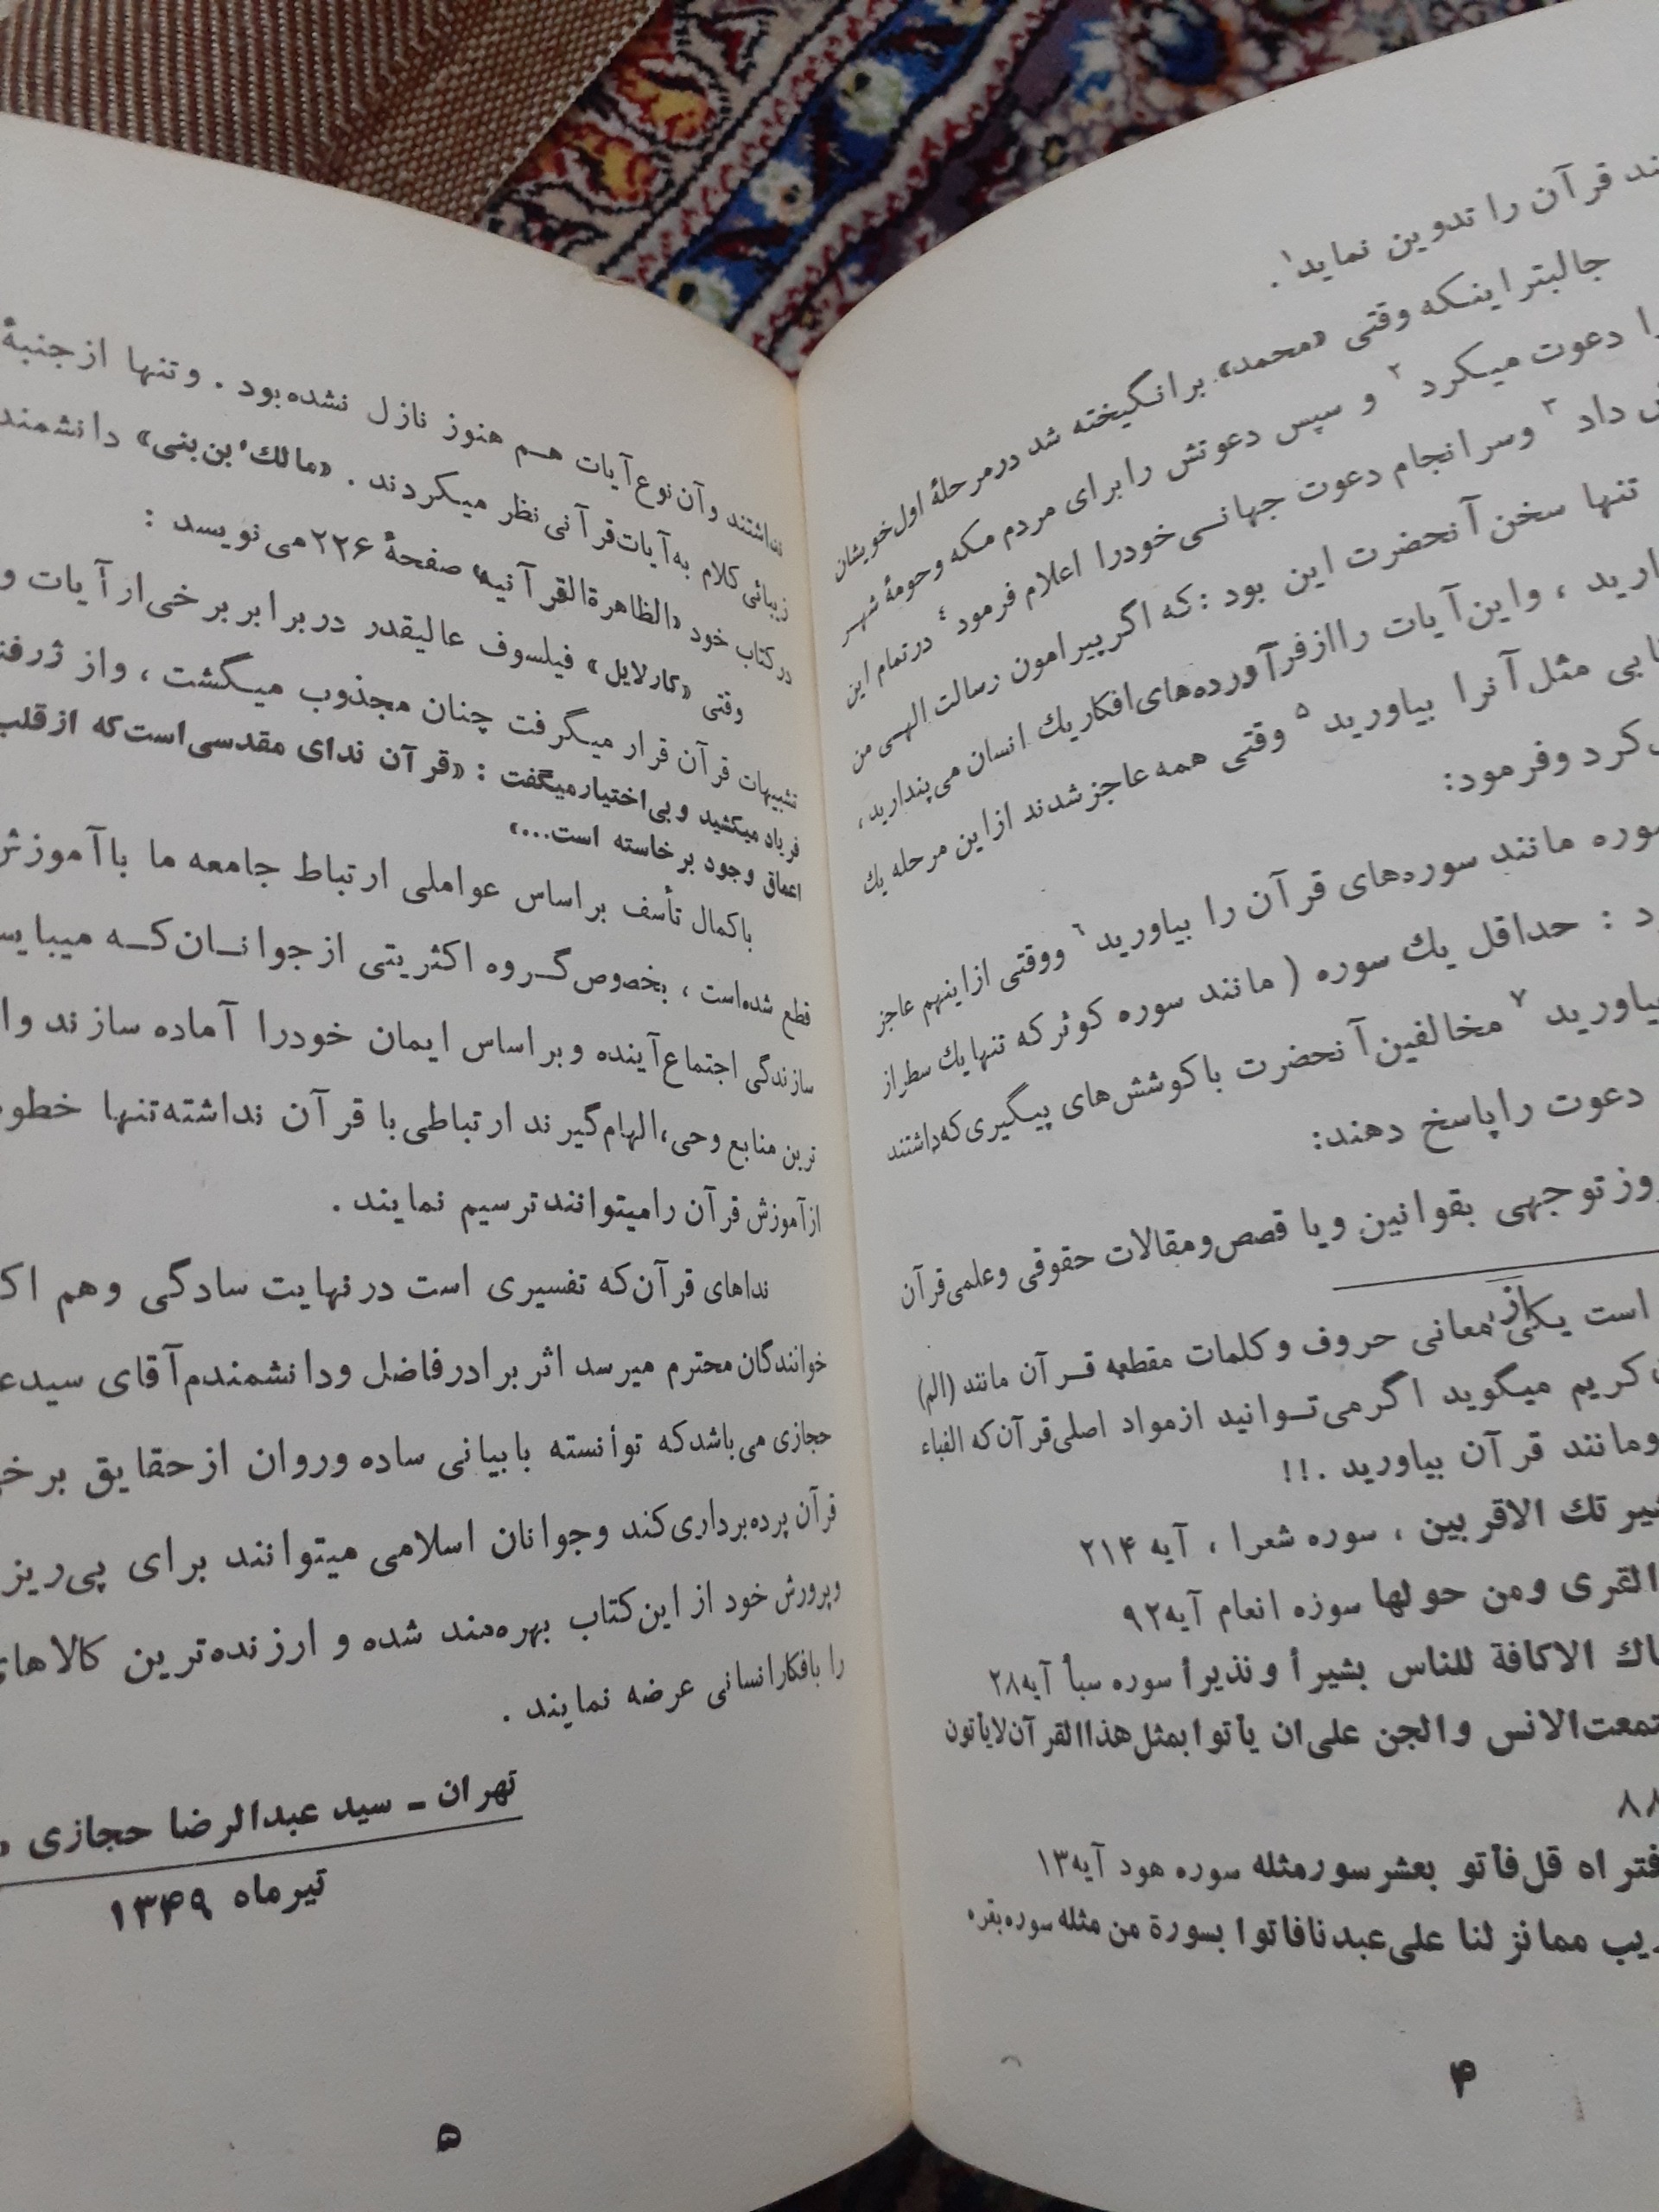 ند قرآن را تدوین نماید۱.
جالبتر اینکه وقتی «محمد» برانگیخته شد در مرحلهٔ اول خویشان
را دعوت میکرد ۲ و سپس دعوتش را برای مردم مکه و حومهٔ شهر
داد ۳ و سرانجام دعوت جهانی خود را اعلام فرمود ٤ در تمام این
تنها سخن آنحضرت این بود : که اگر پیرامون رسالت الهی من
دارید ، و این آیات را از فرآورده‌های افکار یك انسان می‌پندارید ،
مثل آنرا بیاورید ۵ وقتی همه عاجز شدند از این مرحله یك
کرد و فرمود:
سوره مانند سوره‌های قرآن را بیاورید ٦ و وقتی از اینهم عاجز
د : حداقل یك سوره ( مانند سوره کوثر که تنها یك سطر از
بیاورید ۷ مخالفین آنحضرت با کوشش‌های پیگیری که داشتند
دعوت را پاسخ دهند:
روز توجهی بقوانین و یا قصص و مقالات حقوقی و علمی قرآن
است یکی از معانی حروف و کلمات مقطعه قرآن مانند (الم)
کریم میگوید اگر می‌توانید از مواد اصلی قرآن که الفباء
و مانند قرآن بیاورید .!!
شیرتك الاقربین ، سوره شعرا ، آیه ۲۱۴
القری و من حولها سوزه انعام آیه ۹۲
ناك الاکافة للناس بشیرأ و نذیرأ سوره سبأ آیه ۲۸
تمعت الانس والجن علی ان یأتوا بمثل هذا القرآن لایأتون
۸۸
فتراه قل فأتو بعشر سور مثله سوره هود آیه ۱۳
ریب ممانزلنا علی عبدنا فاتوا بسورة من مثله سوره بقره
۴
نداشتند و آن نوع آیات هم هنوز نازل نشده بود . و تنها از جنبهٔ
زیبائی کلام به آیات قرآنی نظر میکردند . «مالك بن بنی» دانشمند
در کتاب خود «الظاهرة القرآنیه» صفحهٔ ۲۲۶ می‌نویسد :
وقتی «کارلایل» فیلسوف عالیقدر در برابر برخی از آیات و
تشبیهات قرآن قرار میگرفت چنان مجذوب میگشت ، و از ژرفنا
فریاد میکشید و بی‌اختیار میگفت : «قرآن ندای مقدسی است که از قلب
اعماق وجود برخاسته است...»
باکمال تأسف بر اساس عواملی ارتباط جامعه ما با آموزش
قطع شده‌است ، بخصوص گروه اکثریتی از جوانان که میبایس
سازندگی اجتماع آینده و بر اساس ایمان خود را آماده سازند و از
ترین منابع وحی، الهام گیرند ارتباطی با قرآن نداشته تنها خطو
از آموزش قرآن را میتوانند ترسیم نمایند .
نداهای قرآن که تفسیری است در نهایت سادگی و هم اک
خوانندگان محترم میرسد اثر برادر فاضل و دانشمندم آقای سید ع
حجازی می‌باشد که توأنسته با بیانی ساده و روان از حقایق برخ
قرآن پرده‌برداری کند و جوانان اسلامی میتوانند برای پی‌ریز
و پرورش خود از این کتاب بهره‌مند شده و ارزنده‌ترین کالاهای
را بافکار انسانی عرضه نمایند .
تهران ـ سید عبدالرضا حجازی
تیرماه ۱۳۴۹
۵